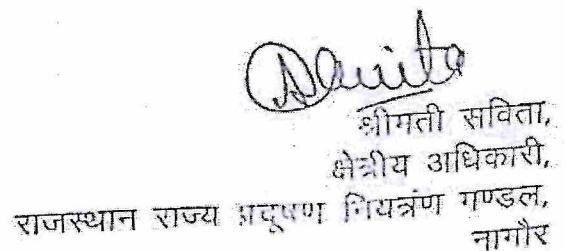 श्रीमती सविता,
क्षेत्रीय अधिकारी,
राजस्थान राज्य प्रदूषण नियत्रंण मण्डल,
नागौर